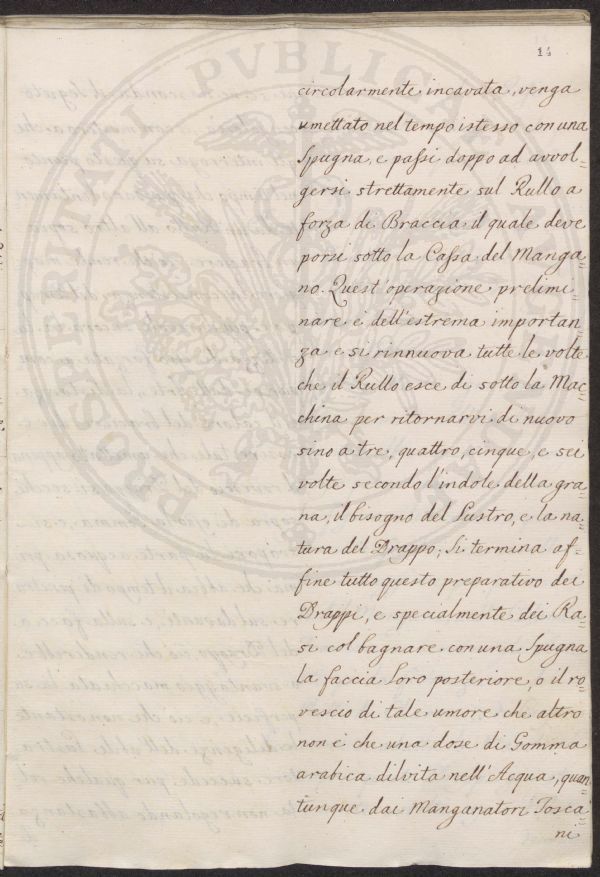 14
circolarmente incavata, venga
umettato nel tempo istesso con una
Spugna, e passi doppo ad avvol=
gersi strettamente sul Rullo a
forza di Braccia il quale deve
porsi sotto la Cassa del Manga=
no. Quest'operazione prelimi=
nare è dell'estrema importan=
za e si rinnuova tutte le volte
che il Rullo esce di sotto la Mac=
china per ritornarvi di nuovo
sino a tre, quattro, cinque, e sei
volte secondo l'indole della gra=
na, il bisogno del Lustro, e la na=
tura del Drappo; Si termina af=
fine tutto questo preparativo dei
Drappi, e specialmente dei Ra=
si col bagnare con una Spugna
la faccia loro posteriore, o il ro=
vescio di tale umore che altro
non è che una dose di Gomma
arabica diluita nell'Acqua, quan=
tunque dai Manganatori Tosca=
ni
PROSPERITATI PVBLICAE